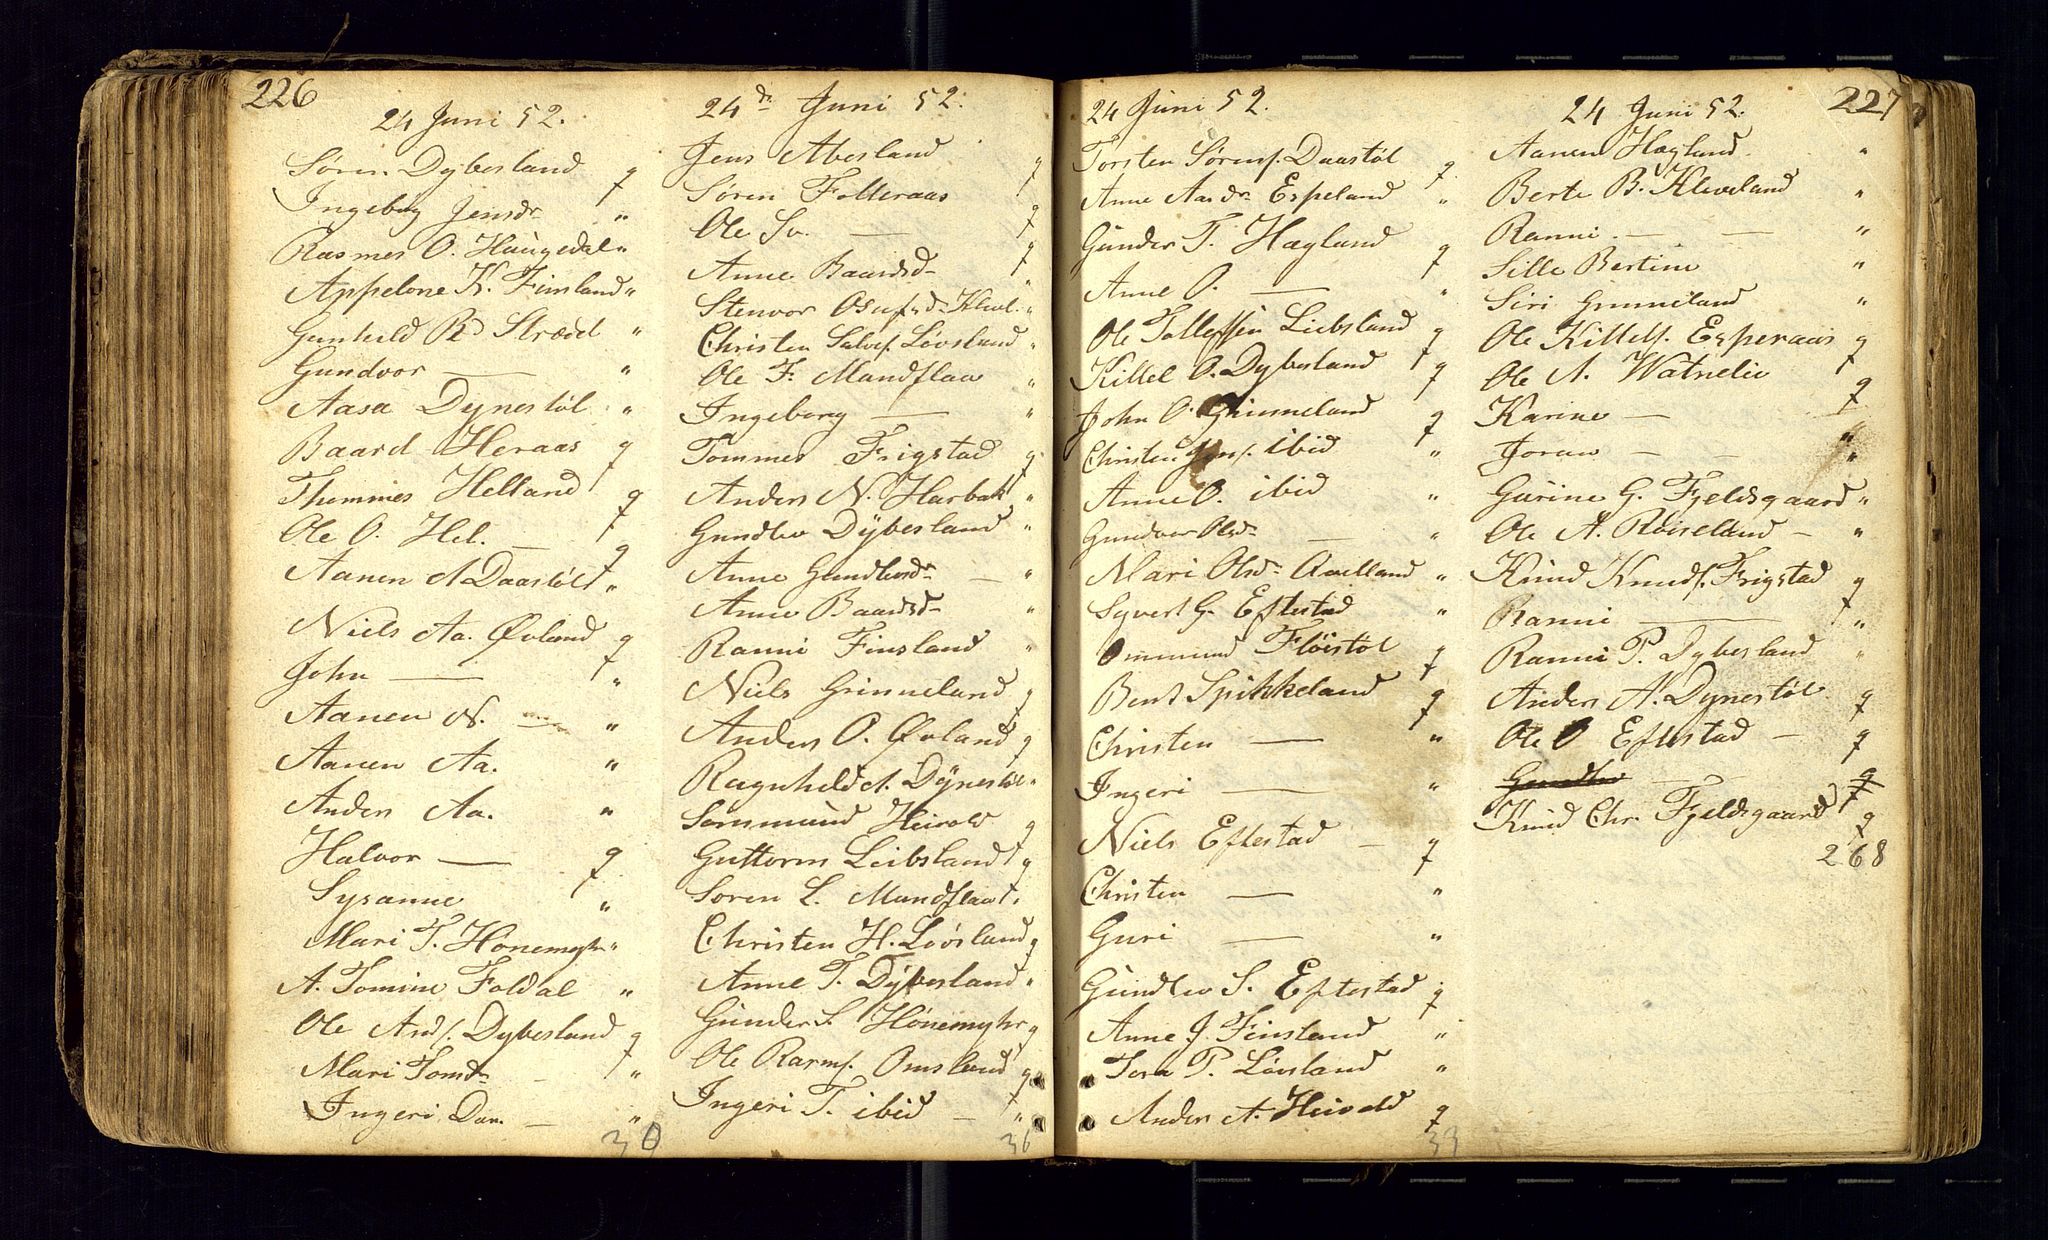 226
24 Juni 52.
Søren Dybesland g
Ingebog Jensdr "
Rasmes O. Haugedal "
Appelone K. Finsland "
Gunhild Rd Strædd "
Gundvor — "
Aasa Dynestøl "
Baard Heraas g
Thommes Helland g
Ole O. Hel. — g
Aanen A Daastøl "
Niels Aa. Øvland g
John — "
Aanen N. — "
Aanen Aa. "
Anders Aa. "
Halvor — g
Sysanne "
Mari T. Hønemyhr "
A. Tomine Foldal "
Ole And/. Dybesland g
Mari Tomdr — "
Ingeri Dan. — "
30
24de Juni 52.
Jens Abesland g
Søren Folleraas g
Ole Sv. — g
Anne Baardsd "
Stenvor Osufsd Klevl. "
Christen Salves. Løvsland "
Ole F. Mandflaa "
Ingeborg — "
Tommes Frigstad g
Anders N. Harbak "
Gundlev Dÿbesland "
Anne Gundlevsdr — "
Anne Baardsd "
Ranni Finsland "
Niels Grinneland g
Anders O. Øvland g
Ragnhild A. Dÿnestøl "
Sammund Heivold g
Guttorm Leibsland g
Søren L. Mandflaa "
Christen H. Løvsland g
Anne T. Dÿbesland "
Gunder S. Hønemyhr g
Ole Rasms. Omsland g
Ingeri T. ibid — "
36
24 Juni 52.
Torsten Sørens. Daastøl g
Anne Aasdr Espeland "
Gunder T. Hægland g
Anne O. — "
Ole Tollefsen Liebsland g
Kittel O. Dybesland g
John O. Grinneland g
Christen Jens. ibid "
Anne O. ibid "
Gundvor Olsd — "
Mari Olsd Qvelland "
Syvert G. Eftestad "
Ommund Fløistøl g
Bent Spikkeland g
Christen — "
Ingeri — "
Niels Eftestad — g
Christen — "
Guri — "
Gundlev S. Eftestad g
Anne J. Finsland "
Tora P. Løvsland "
Anders A. Heivold g
33
227
24 Juni 52.
Aanen Hægland "
Berte B. Kleveland "
Ranni — — "
Sille Bertine "
Siri Grinneland "
Ole Kittels. Esperaas g
Ole A. Watnelie g
Karine — "
Joran — — "
Gurine G. Fjeldsgaard "
Ole A. Røiseland — "
Knud Knuds. Frigstad g
Ranni — "
Ranni P. Dybesland "
Anders A. Dynestøl g
Ole O Eftestad — g
Gundlev — g
Knud Chr. Fjeldsgaard g
268